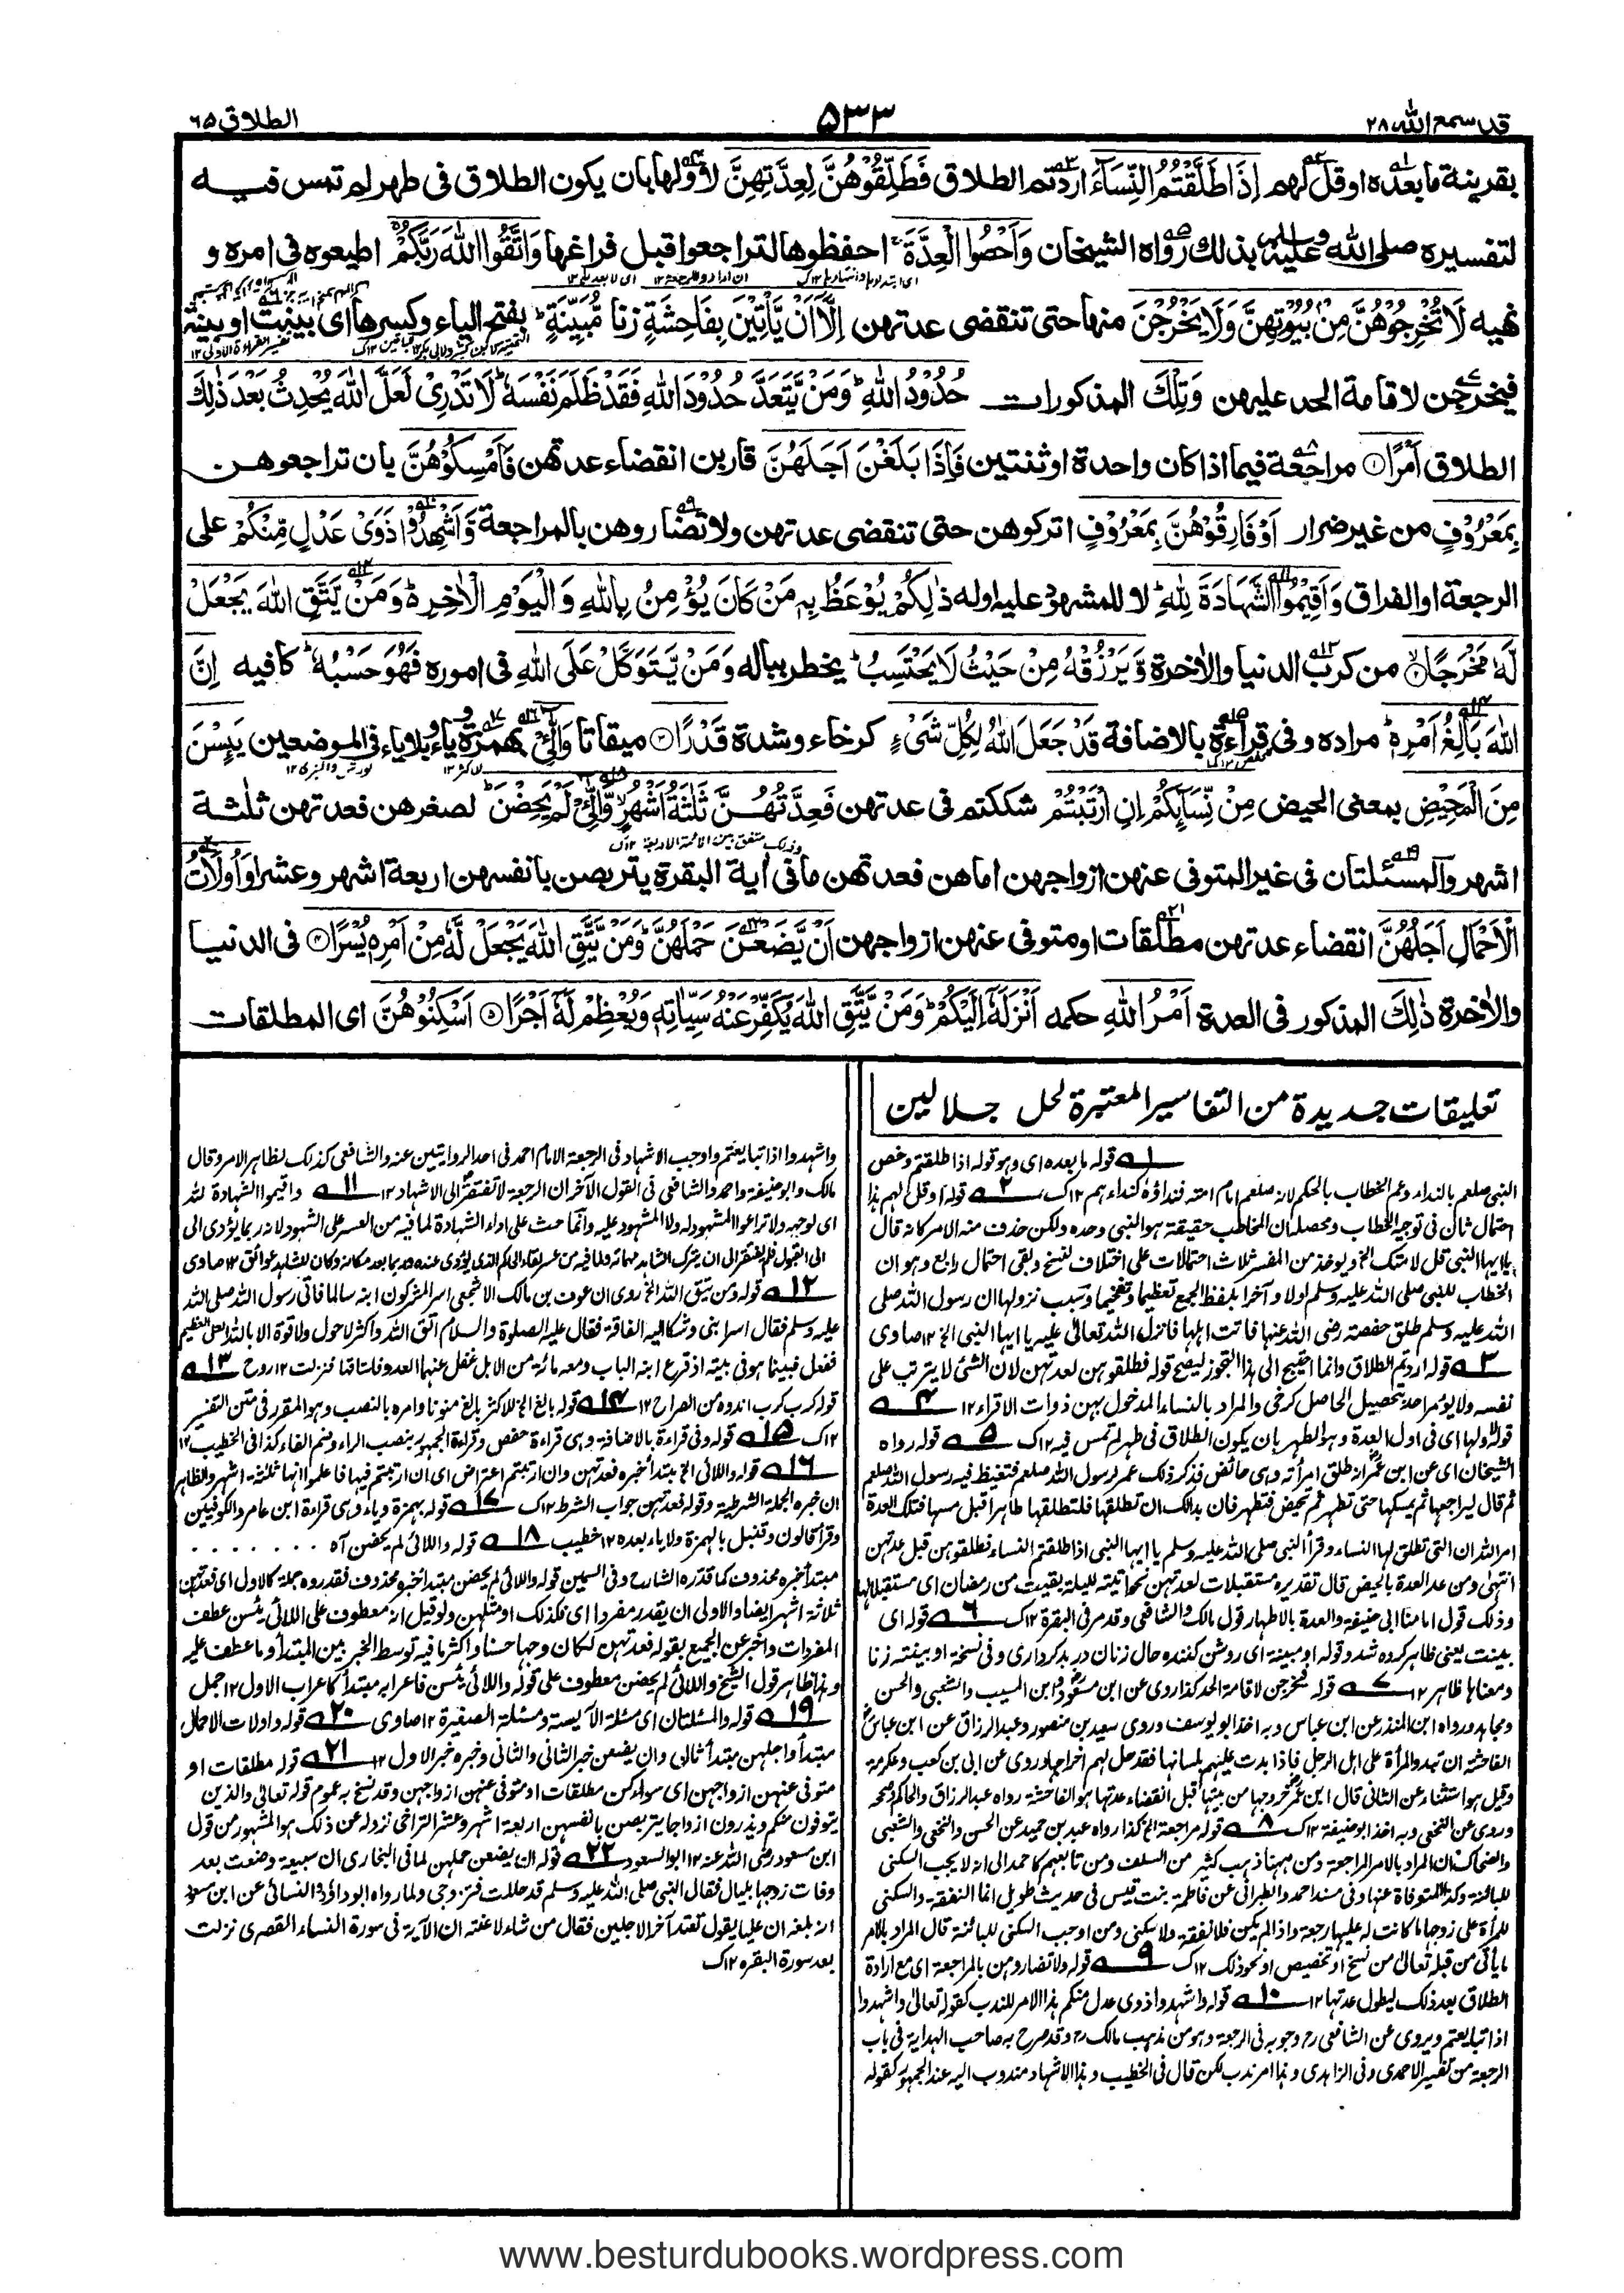 قد سمع الله ٢٨
٥٣٣
الطلاق ٦٥
بقرينة ما بعده او قل لهم اِذَا طَلَّقْتُمُ النِّسَآءَ اردتم الطلاق فَطَلِّقُوْهُنَّ لِعِدَّتِهِنَّ لاولها بان يكون الطلاق فى طهر لم تمس فيه
لتفسيره صلى الله عليه وسلم بذلك رواه الشيخان وَاَحْصُوا الْعِدَّةَ احفظوها لتراجعوا قبل فراغها وَاتَّقُوا اللّٰهَ رَبَّكُمْ اطيعوه فى امره و
نهيه لَا تُخْرِجُوْهُنَّ مِنْ بُيُوْتِهِنَّ وَلَا يَخْرُجْنَ منها حتى تنقضى عدتهن اِلَّا اَنْ يَّاْتِيْنَ بِفَاحِشَةٍ زنا مُّبَيِّنَةٍ بفتح الياء وكسرها اى بينت او بينة
فيخرجن لاقامة الحد عليهن وَتِلْكَ المذكورات حُدُوْدُ اللّٰهِ وَمَنْ يَّتَعَدَّ حُدُوْدَ اللّٰهِ فَقَدْ ظَلَمَ نَفْسَهٗ لَا تَدْرِىْ لَعَلَّ اللّٰهَ يُحْدِثُ بَعْدَ ذٰلِكَ
الطلاق اَمْرًا ۝١ مراجعة فيما اذا كان واحدة او ثنتين فَاِذَا بَلَغْنَ اَجَلَهُنَّ قاربن انقضاء عدتهن فَاَمْسِكُوْهُنَّ بان تراجعوهن
بِمَعْرُوْفٍ من غير ضرار اَوْ فَارِقُوْهُنَّ بِمَعْرُوْفٍ اتركوهن حتى تنقضى عدتهن ولا تضاروهن بالمراجعة وَّاَشْهِدُوْا ذَوَىْ عَدْلٍ مِّنْكُمْ على
الرجعة او الفراق وَاَقِيْمُوا الشَّهَادَةَ لِلّٰهِ لا للمشهود عليه اوله ذٰلِكُمْ يُوْعَظُ بِهٖ مَنْ كَانَ يُؤْمِنُ بِاللّٰهِ وَالْيَوْمِ الْاٰخِرِ وَمَنْ يَّتَّقِ اللّٰهَ يَجْعَلْ
لَّهٗ مَخْرَجًا ۝٢ من كرب الدنيا والاٰخرة وَّيَرْزُقْهُ مِنْ حَيْثُ لَا يَحْتَسِبُ يخطر بباله وَمَنْ يَّتَوَكَّلْ عَلَى اللّٰهِ فى اموره فَهُوَ حَسْبُهٗ كافيه اِنَّ
اللّٰهَ بَالِغُ اَمْرِهٖ مراده وفى قراءة بالاضافة قَدْ جَعَلَ اللّٰهُ لِكُلِّ شَىْءٍ كرخاء وشدة قَدْرًا ۝٣ ميقاتا وَالّٰٓـِٔىْ بهمزة وياء وبلا ياء فى الموضعين يَئِسْنَ
مِنَ الْمَحِيْضِ بمعنى الحيض مِنْ نِّسَآئِكُمْ اِنِ ارْتَبْتُمْ شككتم فى عدتهن فَعِدَّتُهُنَّ ثَلٰثَةُ اَشْهُرٍ وَّالّٰٓـِٔىْ لَمْ يَحِضْنَ لصغرهن فعدتهن ثلثة
اشهر والمسئلتان فى غير المتوفى عنهن ازواجهن اما هن فعدتهن ما فى اٰية البقرة يتربصن بانفسهن اربعة اشهر وعشرا وَاُولَاتُ
الْاَحْمَالِ اَجَلُهُنَّ انقضاء عدتهن مطلقات او متوفى عنهن ازواجهن اَنْ يَّضَعْنَ حَمْلَهُنَّ وَمَنْ يَّتَّقِ اللّٰهَ يَجْعَلْ لَّهٗ مِنْ اَمْرِهٖ يُسْرًا ۝٤ فى الدنيا
والاٰخرة ذٰلِكَ المذكور فى العدة اَمْرُ اللّٰهِ حكمه اَنْزَلَهٗٓ اِلَيْكُمْ وَمَنْ يَّتَّقِ اللّٰهَ يُكَفِّرْ عَنْهُ سَيِّاٰتِهٖ وَيُعْظِمْ لَهٗٓ اَجْرًا ۝٥ اَسْكِنُوْهُنَّ اى المطلقات
تعليقات جديدة من التفاسير المعتبرة لحل جلالين
١ قوله ما بعده اى وهو قوله اذا طلقتم وخص
النبى صلعم بالنداء وعم الخطاب بالحكم لانه صلعم امام امته فنداؤه كنداءهم ١٢ك ٢ قوله او قل لهم هذا
احتمال ثان فى توجيه الخطاب ومحصله ان المخاطب حقيقة هو النبى وحده ولكن حذف منه الامر كانه قال
يا ايها النبى قل لامتك الخ ويوخذ من المفسر ثلاث احتمالات على اختلاف نسخ وبقى احتمال رابع وهو ان
الخطاب للنبى صلى الله عليه وسلم اولا وآخرا بلفظ الجمع تعظيما وتفخيما وسبب نزولها ان رسول الله صلى
الله عليه وسلم طلق حفصة رضى الله عنها فاتت اهلها فانزل الله تعالى عليه يا ايها النبى الخ ١٢ صاوى
٣ قوله اردتم الطلاق وانما احتيج الى هذا التجوز ليصح قوله فطلقوهن لعدتهن لان الشئ لا يترتب على
نفسه ولا يومر احد بتحصيل الحاصل كرخى والمراد بالنساء المدخول بهن ذوات الاقراء ١٢ ٤
قوله لاولها اى فى اول العدة وهو الطهر بان يكون الطلاق فى طهر لم تمس فيه ١٢ك ٥ قوله رواه
الشيخان اى عن ابن عمر انه طلق امرأته وهى حائض فذكر ذلك عمر لرسول الله صلعم فتغيظ فيه رسول الله صلعم
ثم قال ليراجعها ثم يمسكها حتى تطهر ثم تحيض فتطهر فان بدا لك ان تطلقها فلتطلقها طاهرا قبل مسها فتلك العدة
امر الله ان التى تطلق لها النساء وقرأ النبى صلى الله عليه وسلم يا ايها النبى اذا طلقتم النساء فطلقوهن قبل عدتهن
انتهى ومن عد العدة بالحيض قال تقديره مستقبلات لعدتهن نحو اتيته لليلة بقيت من رمضان اى مستقبلا لها
وذلك قول امامنا ابى حنيفة والعدة بالاطهار قول مالك والشافعى وقد مر فى البقرة ١٢ك ٦ قوله اى
بينت يعنى ظاهر كرده شد وقوله او مبينة اى روشن كننده حال زنان در بدكردارى وفى نسخة او بينته زنا
ومعناها ظاهر ١٢ ٧ قوله فيخرجن لاقامة الحد كذا روى عن ابن مسعود وابن المسيب والشعبى والحسن
ومجاهد ورواه ابن المنذر عن ابن عباس وبه اخذ ابو يوسف وروى سعيد بن منصور وعبد الرزاق عن ابن عباس
الفاحشة ان تبذو المرأة على اهل الرجل فاذا بذت عليهم بلسانها فقد حل لهم اخراجها وروى عن ابى بن كعب وعكرمة
وقيل هو استثناء عن الثانى قال ابن عمر خروجها من بيتها قبل انقضاء عدتها هو الفاحشة رواه عبد الرزاق والحاكم وصححه
وروى عن النخعى وبه اخذ ابو حنيفة ١٢ك ٨ قوله مراجعة الخ كذا رواه عبد بن حميد عن الحسن والنخعى والشعبى
والضحاك ان المراد بالامر المراجعة ومن ههنا ذهب كثير من السلف ومن تابعهم كاحمد الى انه لا يجب السكنى
للبائنة وكذا للمتوفاة عنها وفى مسند احمد والطبرانى عن فاطمة بنت قيس فى حديث طويل انما النفقة والسكنى
للمرأة على زوجها ما كانت له عليها رجعة واذا لم يكن فلا نفقة ولا سكنى ومن اوجب السكنى للبائنة قال المراد بالامر
ما يأتى من قبله تعالى من نسخ او تخصيص او نحو ذلك ١٢ك ٩ قوله ولا تضاروهن بالمراجعة اى مع ارادة
الطلاق بعد ذلك ليطول عدتها ١٢ ١٠ قوله واشهدوا ذوى عدل منكم هذا الامر للندب كقوله تعالى واشهدوا
اذا تبايعتم ويروى عن الشافعى رح وجوبه فى الرجعة وهو من مذهب مالك رح وقد صرح به صاحب الهداية فى باب
الرجعة من تفسير الاحمدى وفى الزاهدى وهذا امر ندب لكن قال فى الخطيب وهذا الاشهاد مندوب اليه عند الجمهور كقوله
واشهدوا اذا تبايعتم واوجب الاشهاد فى الرجعة الامام احمد فى احد الروايتين عنه والشافعى كذلك لظاهر الامر وقال
مالك وابو حنيفة واحمد والشافعى فى القول الآخر ان الرجعة لا تفتقر الى الاشهاد ١٢ ١١ واقيموا الشهادة لله
اى لوجهه ولا تراعوا المشهود له ولا المشهود عليه وانما حث على اداء الشهادة لما فيه من العسر على الشهود لانه ربما يؤدى الى
١٢ صاوى
١٢ قوله ومن يتق الله الخ روى ان عوف بن مالك الاشجعى اسر المشركون ابنه سالما فاتى رسول الله صلى الله
عليه وسلم فقال اسر ابنى وشكا اليه الفاقة فقال عليه الصلوة والسلام اتق الله واكثر لا حول ولا قوة الا بالله العلى العظيم
ففعل فبينا هو فى بيته اذ قرع ابنه الباب ومعه مائة من الابل غفل عنها العدو فاستاقها فنزلت ١٢ روح ١٣
قوله كرب كرب اندوه من الصراح ١٢ ١٤ قوله بالغ الخ للاكثر بالغ منونا وامره بالنصب وهو المقرر فى متن التفسير
١٢ك ١٥ قوله وفى قراءة بالاضافة وهى قراءة حفص وقراءة الجمهور بنصب الراء وضم الهاء كذا فى الخطيب ١٢
١٦ قوله واللائى الخ مبتدأ خبره فعدتهن وان ارتبتم اعتراض اى ان ارتبتم فيها فاعلموا انها ثلثة اشهر والظاهر
ان خبره الجملة الشرطية وقوله فعدتهن جواب الشرط ١٢ك ١٧ قوله بهمزة وياء وهى قراءة ابن عامر والكوفيين
وقرأ قالون وقنبل بالهمزة ولا ياء بعده ١٢ خطيب ١٨ قوله واللائى لم يحضن آه
مبتدأ خبره محذوف كما قدره الشارح وفى السمين قوله واللائى لم يحضن مبتدأ خبره محذوف فقدروه جملة كالاول اى فعدتهن
ثلاثة اشهر ايضا والاولى ان يقدر مفردا اى فكذلك او مثلهن ولو قيل انه معطوف على اللائى يئسن عطف
المفردات واخبر عن الجميع بقوله فعدتهن لكان وجها حسنا واكثر ما فيه توسط الخبر بين المبتدأ وما عطف عليه
وهذا ظاهر قول الشيخ واللائى لم يحضن معطوف على قوله واللائى يئسن فاعرابه مبتدأ كاعراب الاول ١٢ جمل
١٩ قوله والمسئلتان اى مسئلة الآيسة ومسئلة الصغيرة ١٢ صاوى ٢٠ قوله واولات الاحمال
مبتدأ واجلهن مبتدأ ثانى وان يضعن خبر الثانى والثانى وخبره خبر الاول ١٢ ٢١ قوله مطلقات او
متوفى عنهن ازواجهن اى سواء كن مطلقات او متوفى عنهن ازواجهن وقد نسخ به عموم قوله تعالى والذين
يتوفون منكم ويذرون ازواجا يتربصن بانفسهن اربعة اشهر وعشرا لتراخى نزوله عن ذلك هو المشهور من قول
ابن مسعود رضى الله عنه ١٢ ابو السعود ٢٢ قوله ان يضعن حملهن لما فى البخارى ان سبيعة وضعت بعد
وفات زوجها بليال فقال النبى صلى الله عليه وسلم قد حللت فتزوجى ولما رواه ابو داؤد والنسائى عن ابن مسعود
انه بلغه ان عليا يقول تعتد آخر الاجلين فقال من شاء لاعنته ان الآية فى سورة النساء القصرى نزلت
بعد سورة البقره ١٢ك
www.besturdubooks.wordpress.com